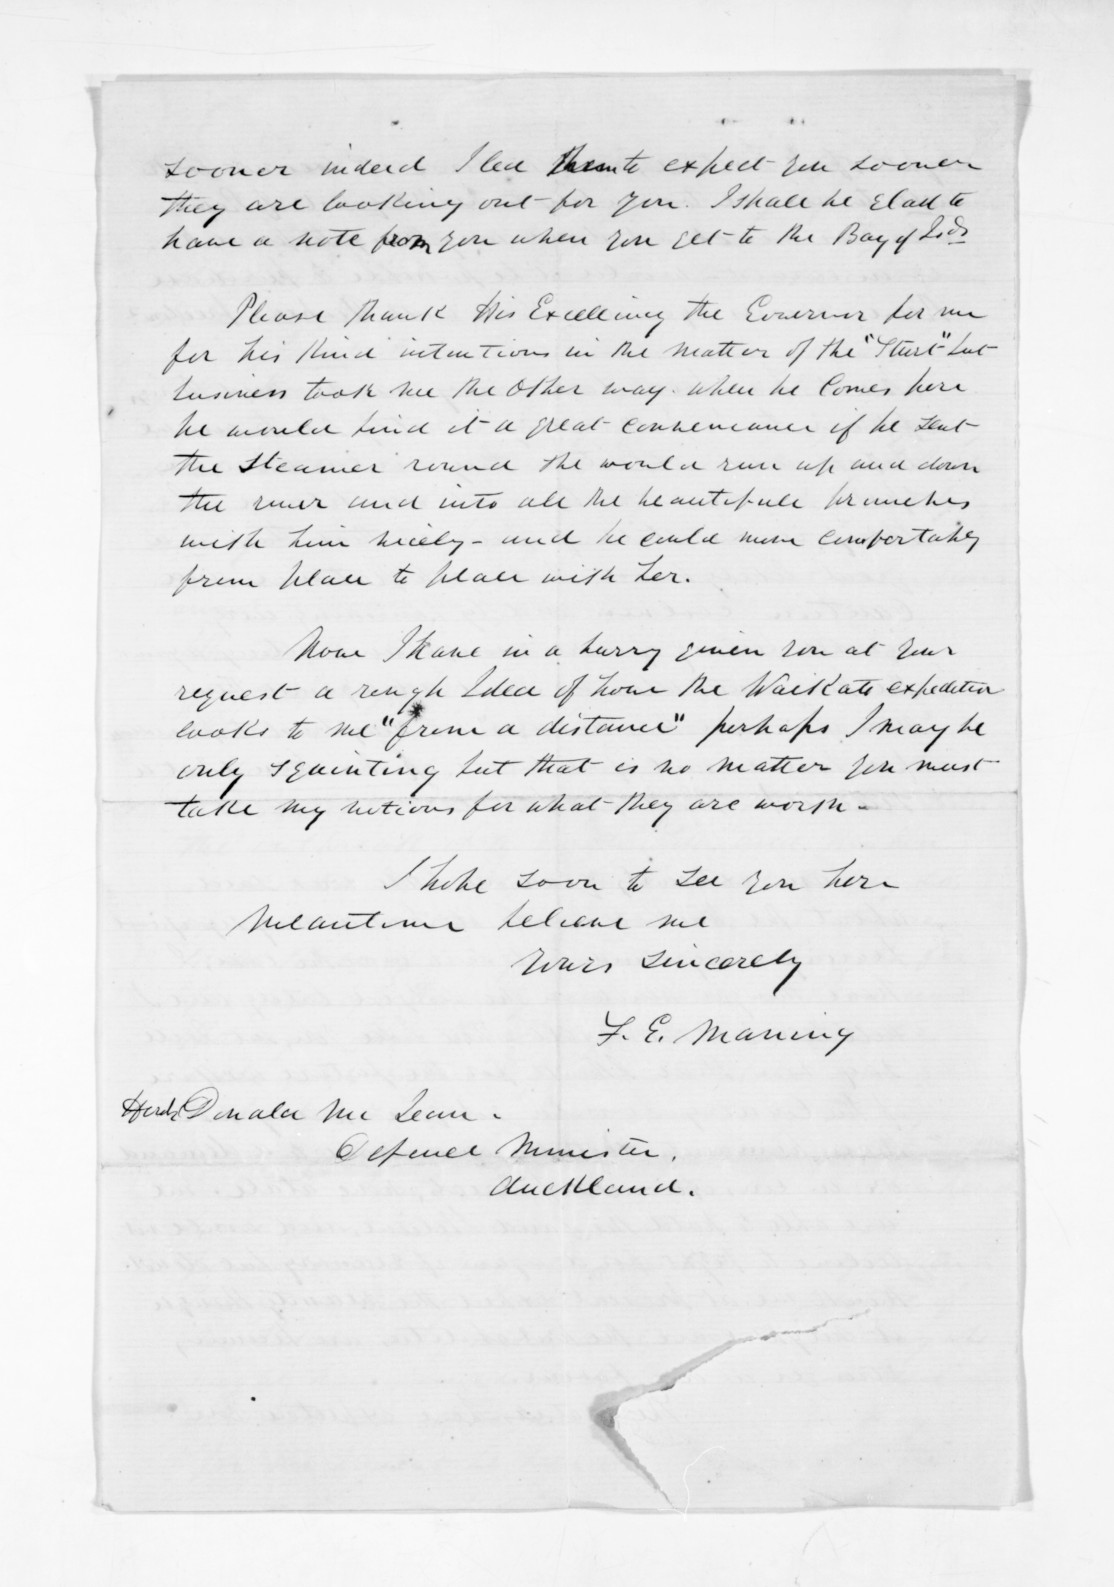 sooner indeed I led them to expect you sooner
they are looking out for you. I shall be glad to
have a note from you when you get to the Bay of Isds
Please thank His Excellency the Governor for me
for his kind intentions in the matter of the "Sturt" but
business took me the other way. when he comes here
he would find it a great convenience if he sent
the Steamer round she would run up and down
the river and into all the beautifull branches
with him nicely - and he could move comfortably
from place to place with her.
Now I have in a hurry given you at your
request a rough Idea of how the Waikato expedition
looks to me "from a distance" perhaps I may be
only squinting but that is no matter you must
take my notions for what they are worth -
I hope soon to see you here
Meantime believe me
Yours sincerely
F. E. Maning
Honble Donald Mc Lean.
Defence Minister.
Auckland.